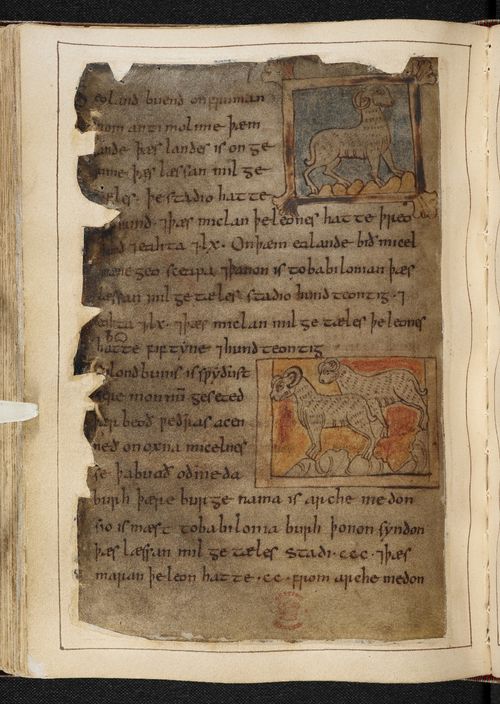 land buend on fruman
from antimolime þæm
lande þæs landes is on ge
rime þæs læssan mil ge
teles þe stadio hatte
hund ⁊ þæs miclan þe leones hatte þreo
hund ⁊ eahta ⁊ lx · On þæm ealande bið micel
mænegeo sceapa ⁊ þanon is to babilonian þæs
læssan mil geteles stadio hundteontig · ⁊
eahta ⁊ lx · ⁊ þæs miclan mil geteles þe leones
hatte fiftyne ⁊ hundteontig
lond bunis is swyðust
monnū geseted
þær beoð weðras acen
ned on oxna micelnes
se þa buað oð meda
burh þære burge nama is archemedon
sio is mæst to babilonia burh þonon syndon
þæs læssan mil geteles stadi · ccc · ⁊ þæs
maran þe leon hatte · cc · from archemedon